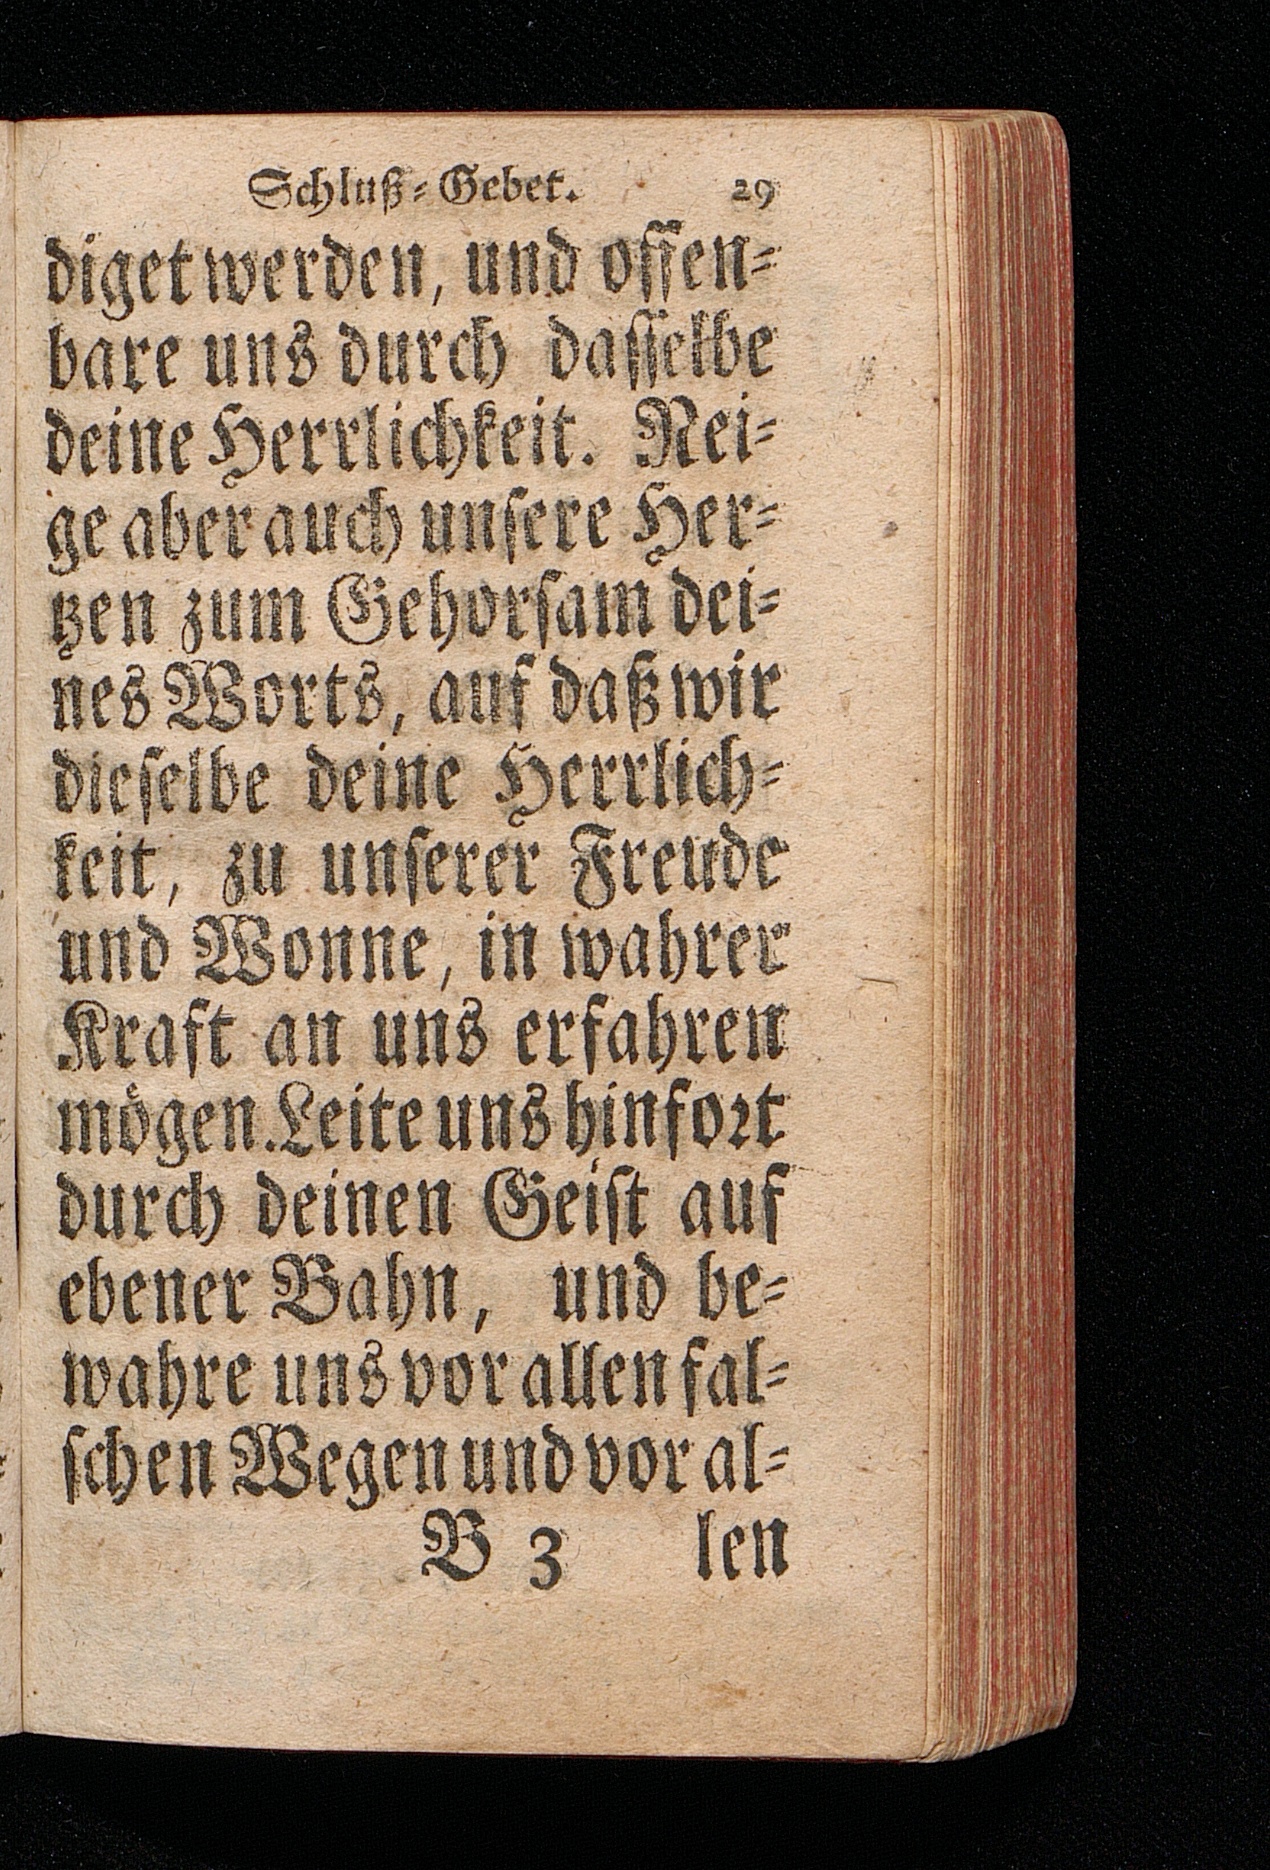 Schluß-Gebet. 29
diget werden, und offen-
bare uns durch dasselbe
deine Herrlichkeit. Nei-
ge aber auch unsere Her-
tzen zum Gehorsam dei-
nes Worts, auf daß wir
dieselbe deine Herrlich-
keit, zu unserer Freude
und Wonne, in wahrer
Kraft an uns erfahren
mögen. Leite uns hinfort
durch deinen Geist auf
ebener Bahn, und be-
wahre uns vor allen fal-
schen Wegen und vor al-
B 3 len